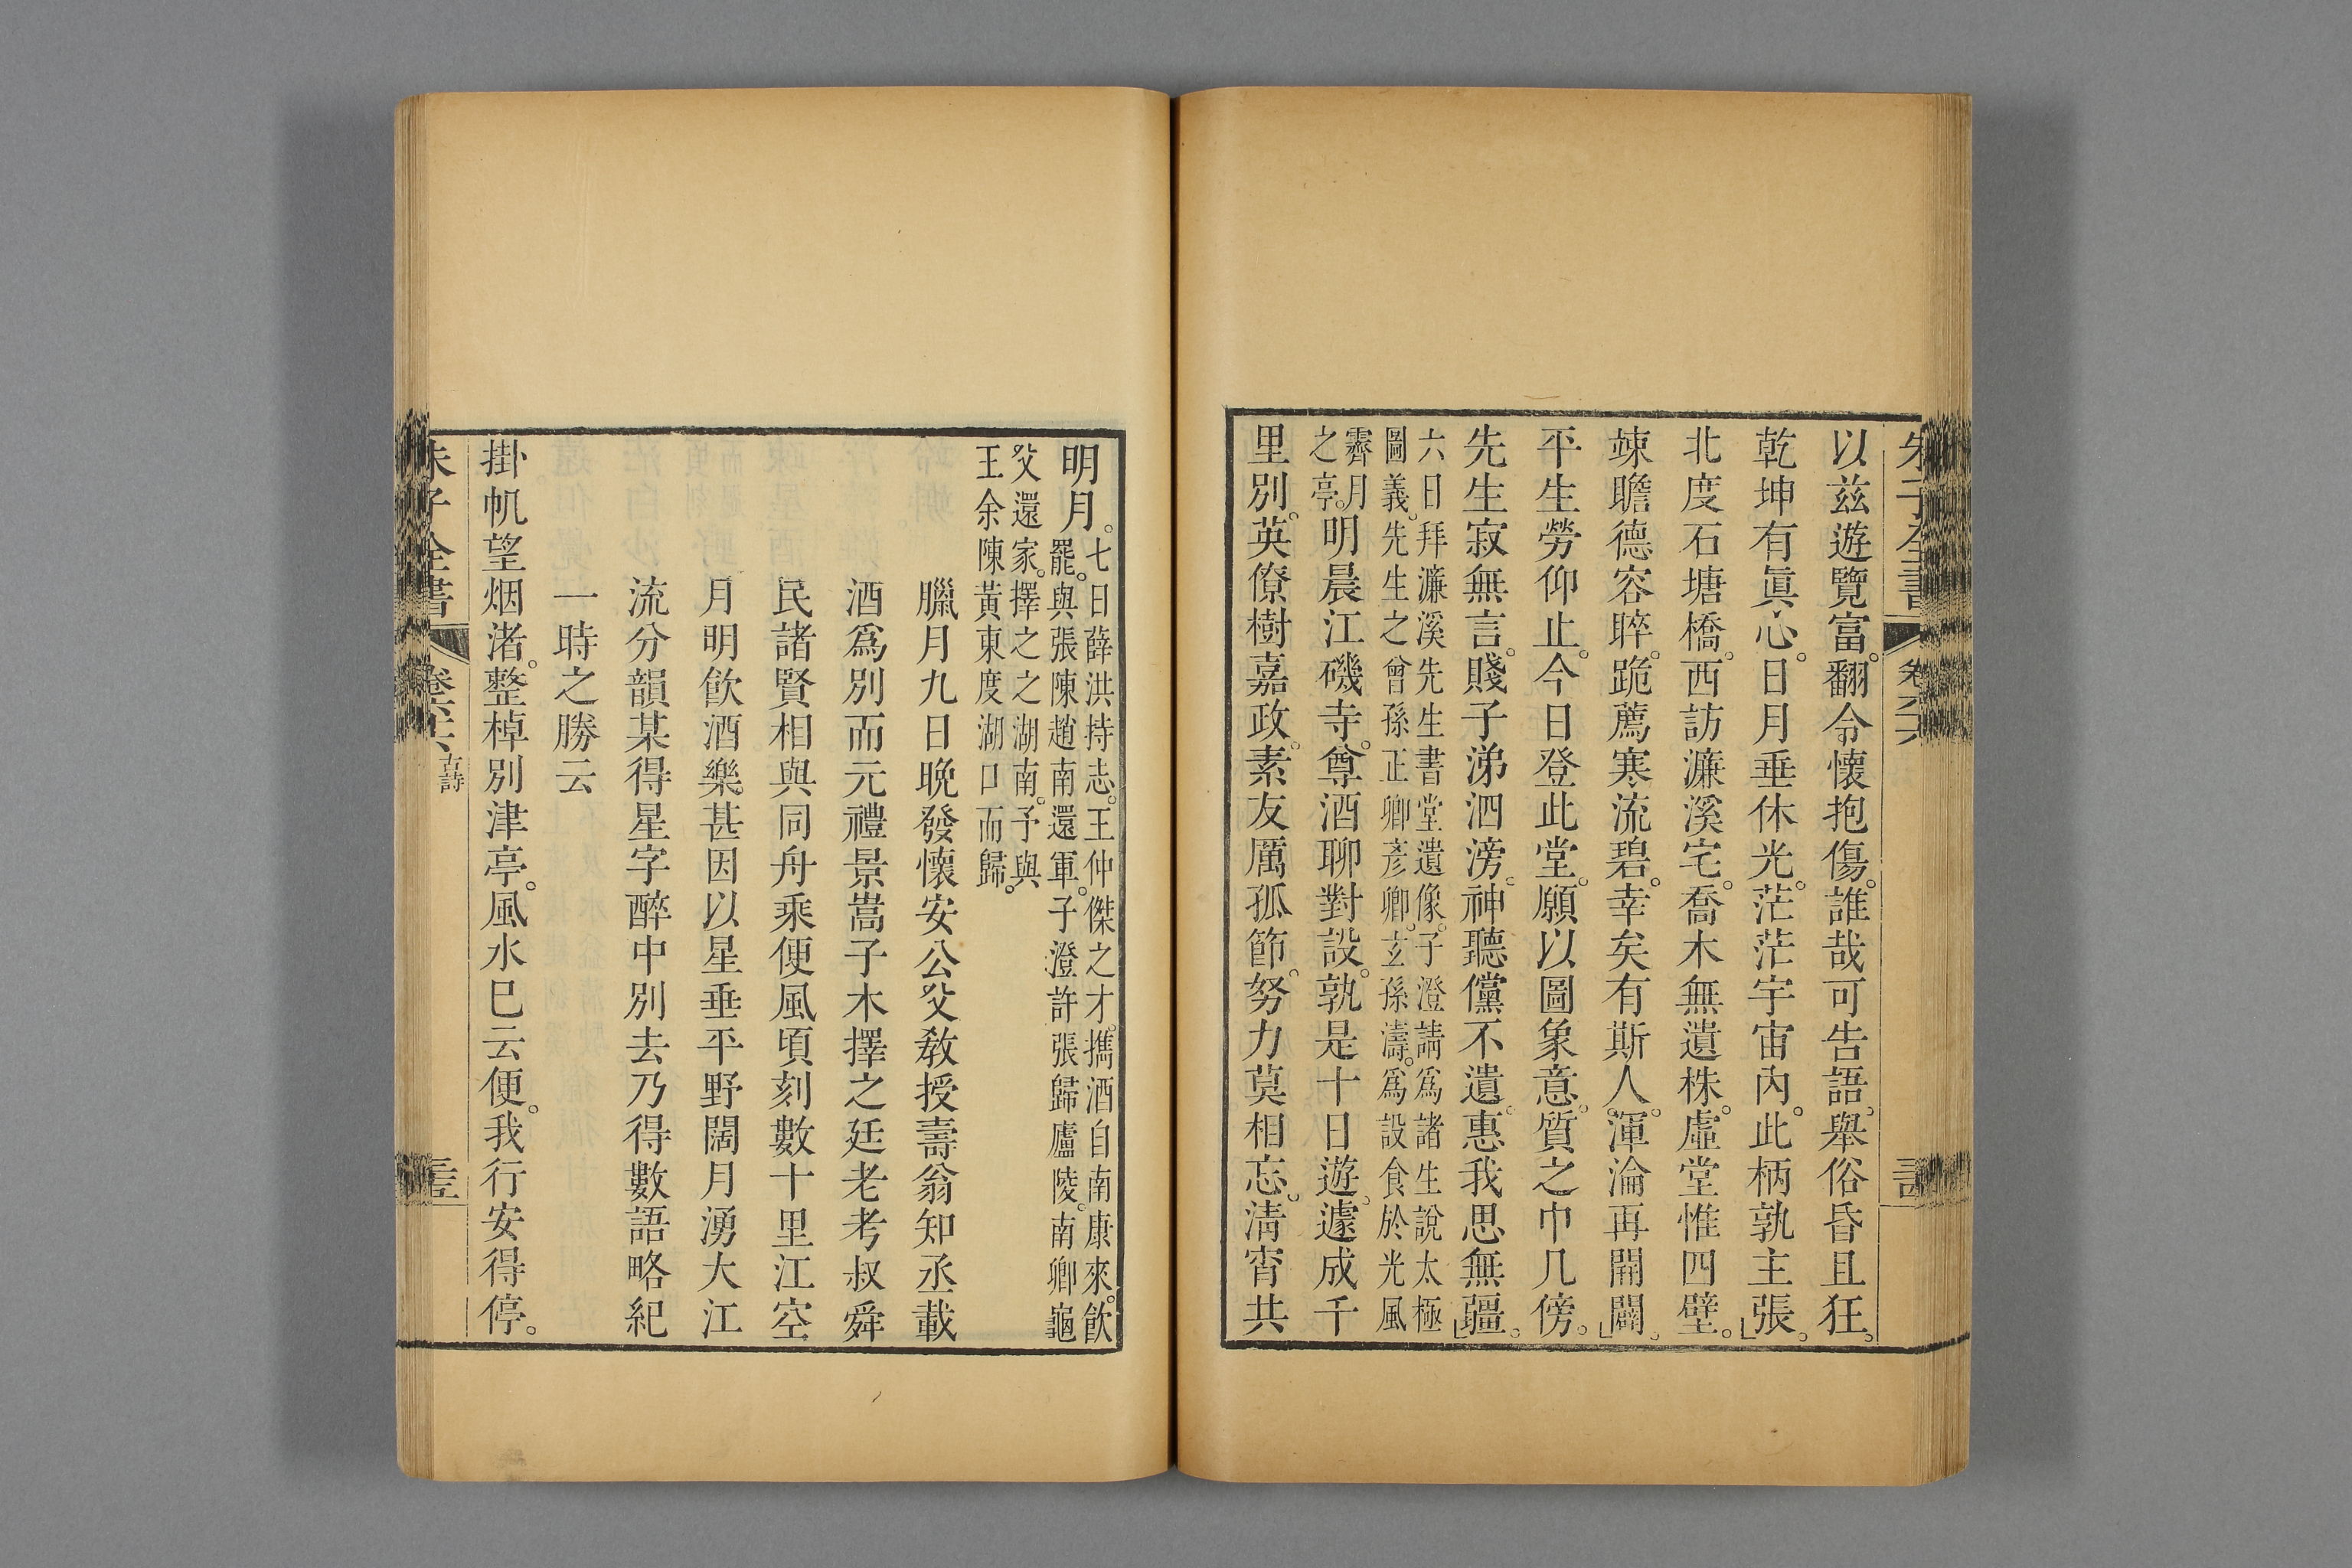 朱子全書 卷六六
以茲遊覽富。翻令懷抱傷。誰哉可告語。舉俗昏且狂。
乾坤有眞心。日月垂休光。茫茫宇宙內。此柄孰主張。
北度石塘橋。西訪濂溪宅。喬木無遺株。虛堂惟四壁。
竦瞻德容睟。跪薦寒流碧。幸矣有斯人。渾淪再開闢。
平生勞仰止。今日登此堂。願以圖象意。質之巾几傍。
先生寂無言。賤子涕泗滂。神聽儻不遺。惠我思無疆。
六日拜濂溪先生書堂遺像。子澄請爲諸生說太極
圖義。先生之曾孫正卿彥卿。玄孫濤。爲設食於光風
霽月
之亭。
明晨江磯寺。尊酒聊對設。孰是十日遊。遽成千
里別。英僚樹嘉政。素友厲孤節。努力莫相忘。清宵共
明月。
七日薛洪持志。王仲傑之才。攜酒自南康來。飲
罷。與張陳趙南還軍。子澄許張歸廬陵。南卿龜
父還家。擇之之湖南。予與
王余陳黃東度湖口而歸。
臘月九日晚發懷安公父敎授壽翁知丞載
酒爲別而元禮景嵩子木擇之廷老考叔舜
民諸賢相與同舟乘便風頃刻數十里江空
月明飲酒樂甚因以星垂平野闊月湧大江
流分韻某得星字醉中別去乃得數語略紀
一時之勝云
掛帆望烟渚。整棹別津亭。風水已云便。我行安得停。
朱子全書 卷六六 古詩